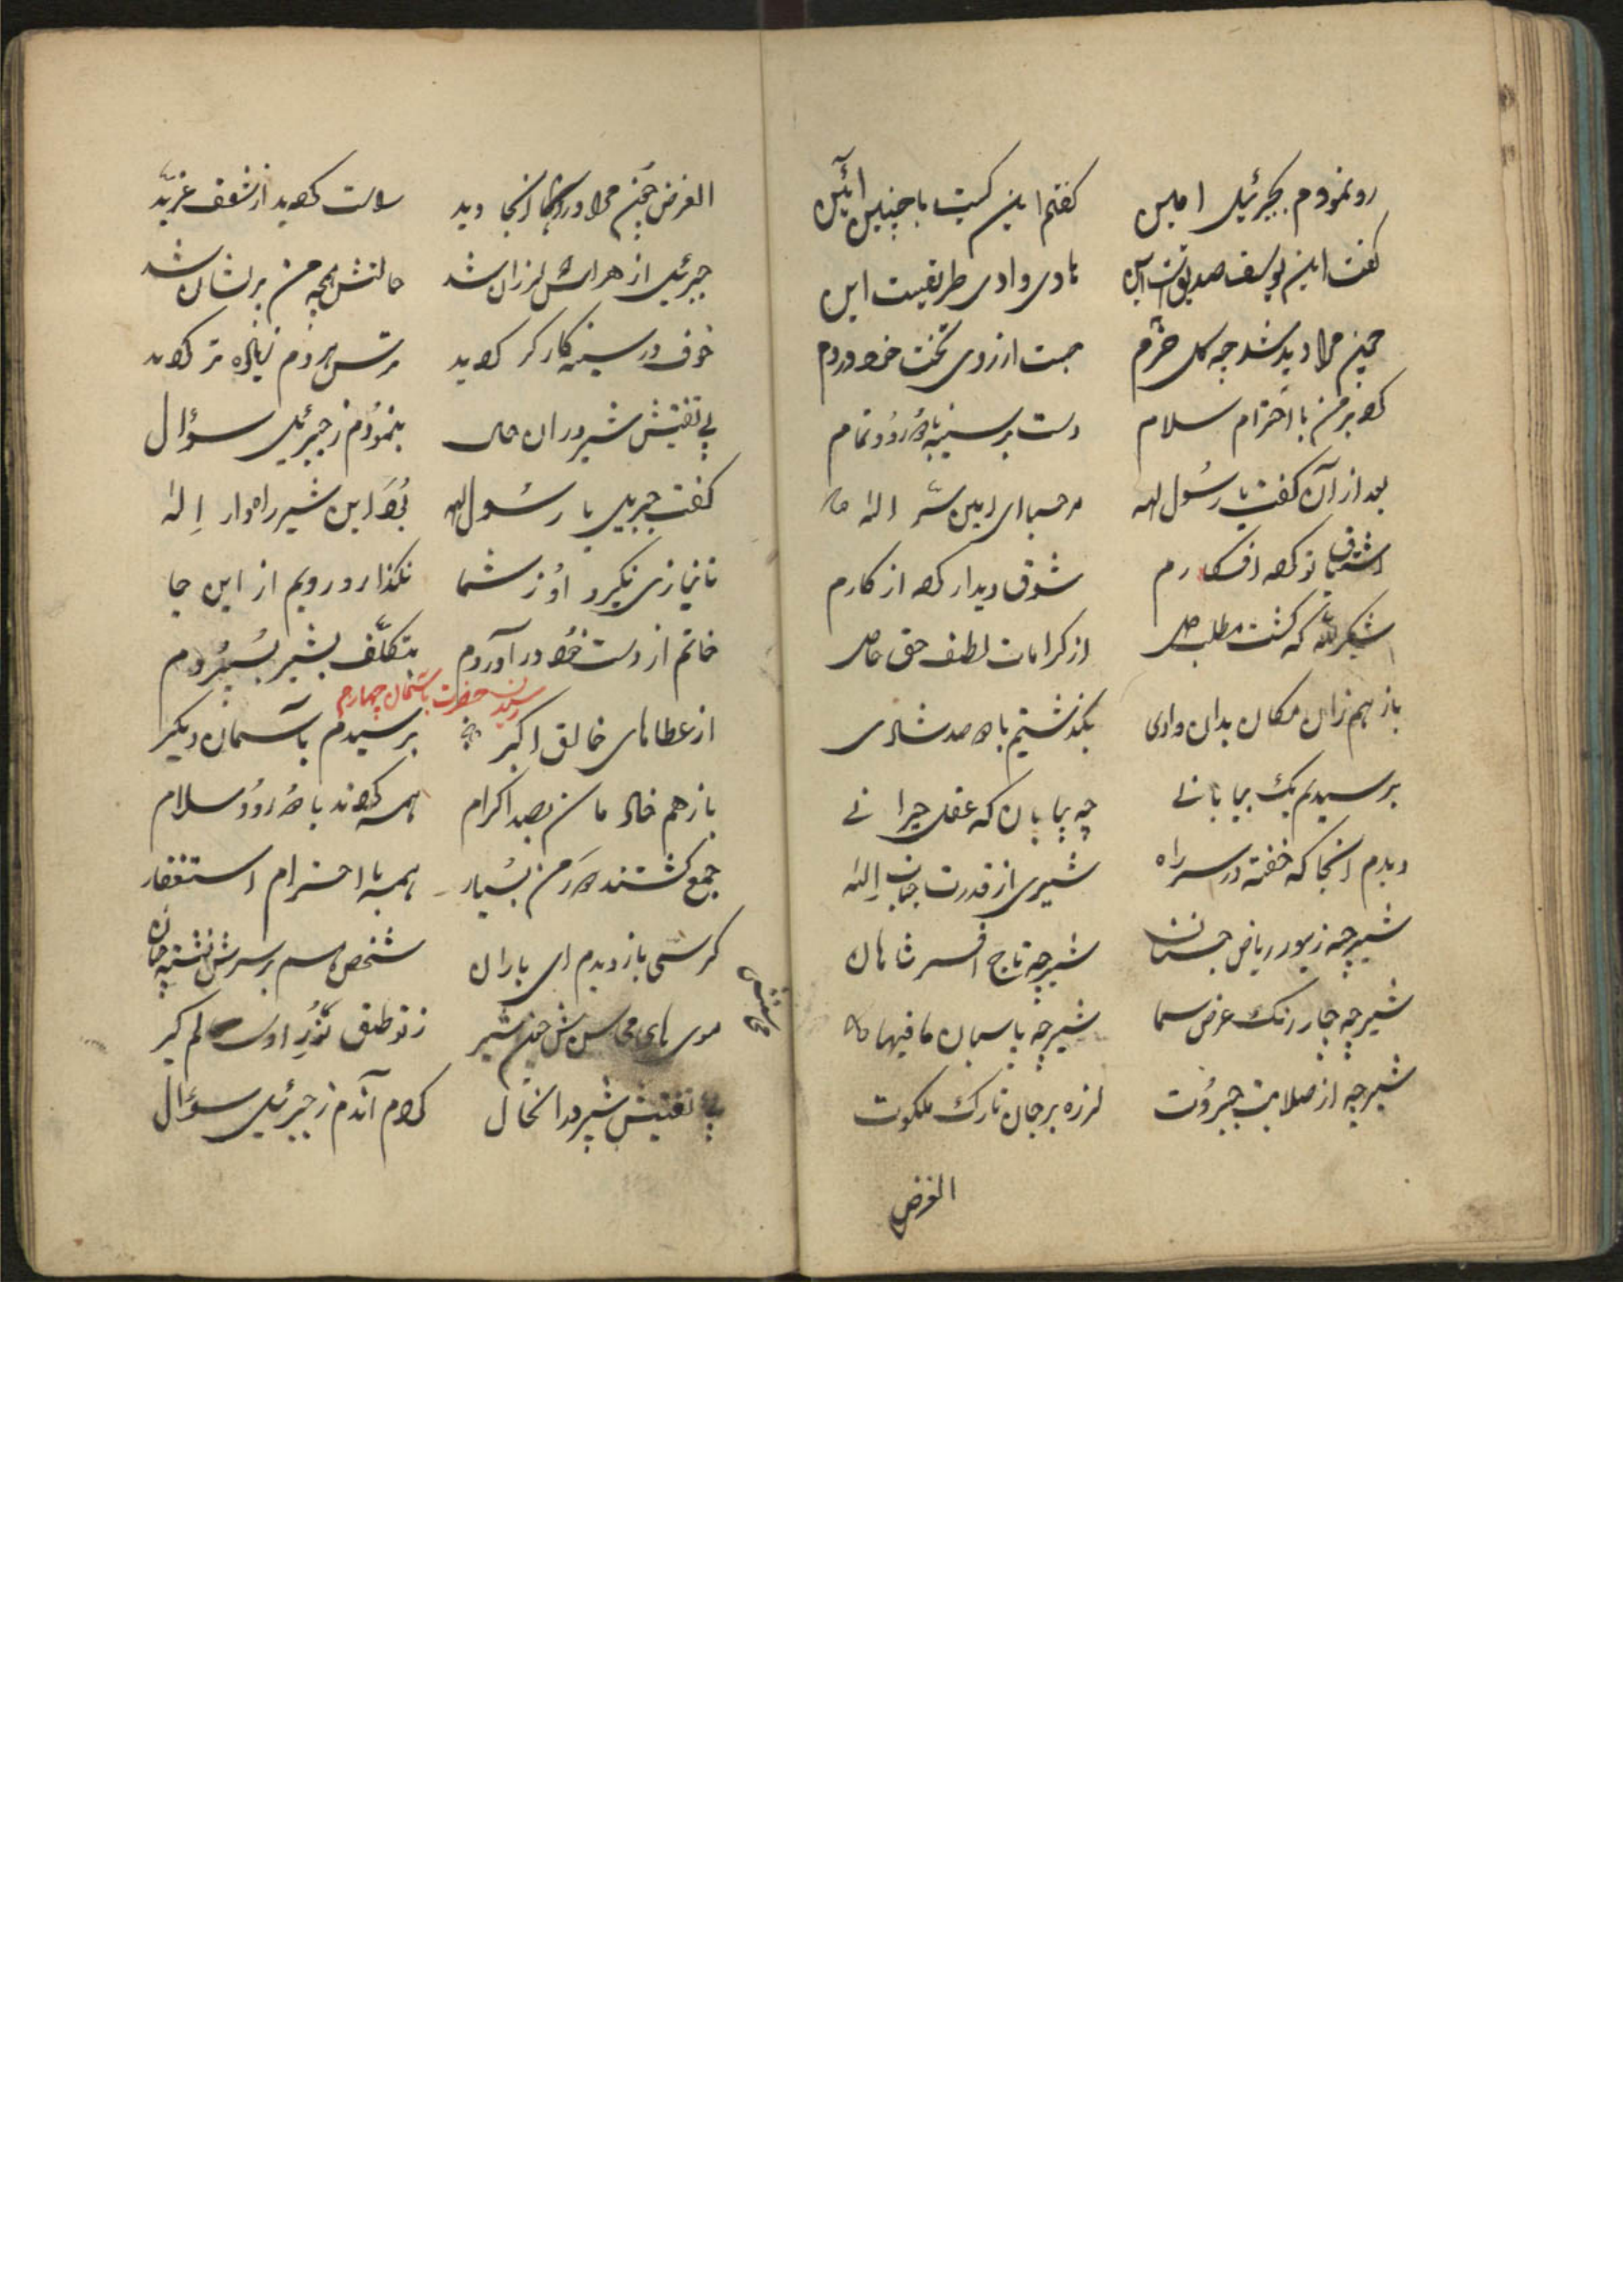 رو نمودم بجبرئیل امین کفتم این کیست با چنین آئین
کفت این یوسف صدیق است این هادی وادی طریقیست این
چین مرا دید شد چه کل خرم جست از روی تخت خود در دم
کرد بر من با احترام سلام دست بر سینه با درود تمام
بعد از آن کفت یا رسُول الله مرحبا ای امین سرّ اله
اشتیاق تو کرد افکارم شوق دیدار کرد از کارم
شکر للّه که کشت مطلب حل از کرامات لطف حق حاصل
باز هم زان مکان بدان وادی بکذشتیم با دو صد شادی
برسیدیم یک بیابانے چه بیابان که عقل حیرانے
دیدم انجا که خفته در سر راه شیری از قدرت جناب إلٰه
شیر چه زیور ریاض جنان شیر چه تاج افسر شاهان
شیر چه چار رنک عرض سما شیر چه پاسبان ما فیها
شیر چه از صلابت جبرُوت لرزه بر جان تارک ملکوت
الغرض
الغرض چین مرا در انجا دید راست کردید از شعف غرّید
جبرئیل از هراسش لرزان شد حالتش همچه من پریشان شد
خوف در سینه کارکر کردید ترس هر دم زیاده تر کردید
پی تفتیش شیر در ان حال بنمودم ز جبرئیل سؤال
کفت جبریل یا رسُول الله بُوَد این شیر راهدار إِله
تا نیازی نکیرد اوُ ز شما نکذارد رویم از این جا
خاتم از دست خود در آوردم بتکلّف بشیر بسُپُردم
رسیدن حضرت باسمان چهارم
از عطاهای خالق اکبر برسیدم بآسمان دیکر
باز هم خادمان بصد اکرام همه کردند با درود سلام
جمع کشتند دور من بسُیار همه با احترام استغفار
کرسّی باز دیدم ای یاران شخص هم بر سرش نشته چنان
موی های محاسنش چین شیر ز نو طبق نُور اوست لم کیر
پی تفتیش شیر در انحال کردم آندم ز جبرئیل سؤال